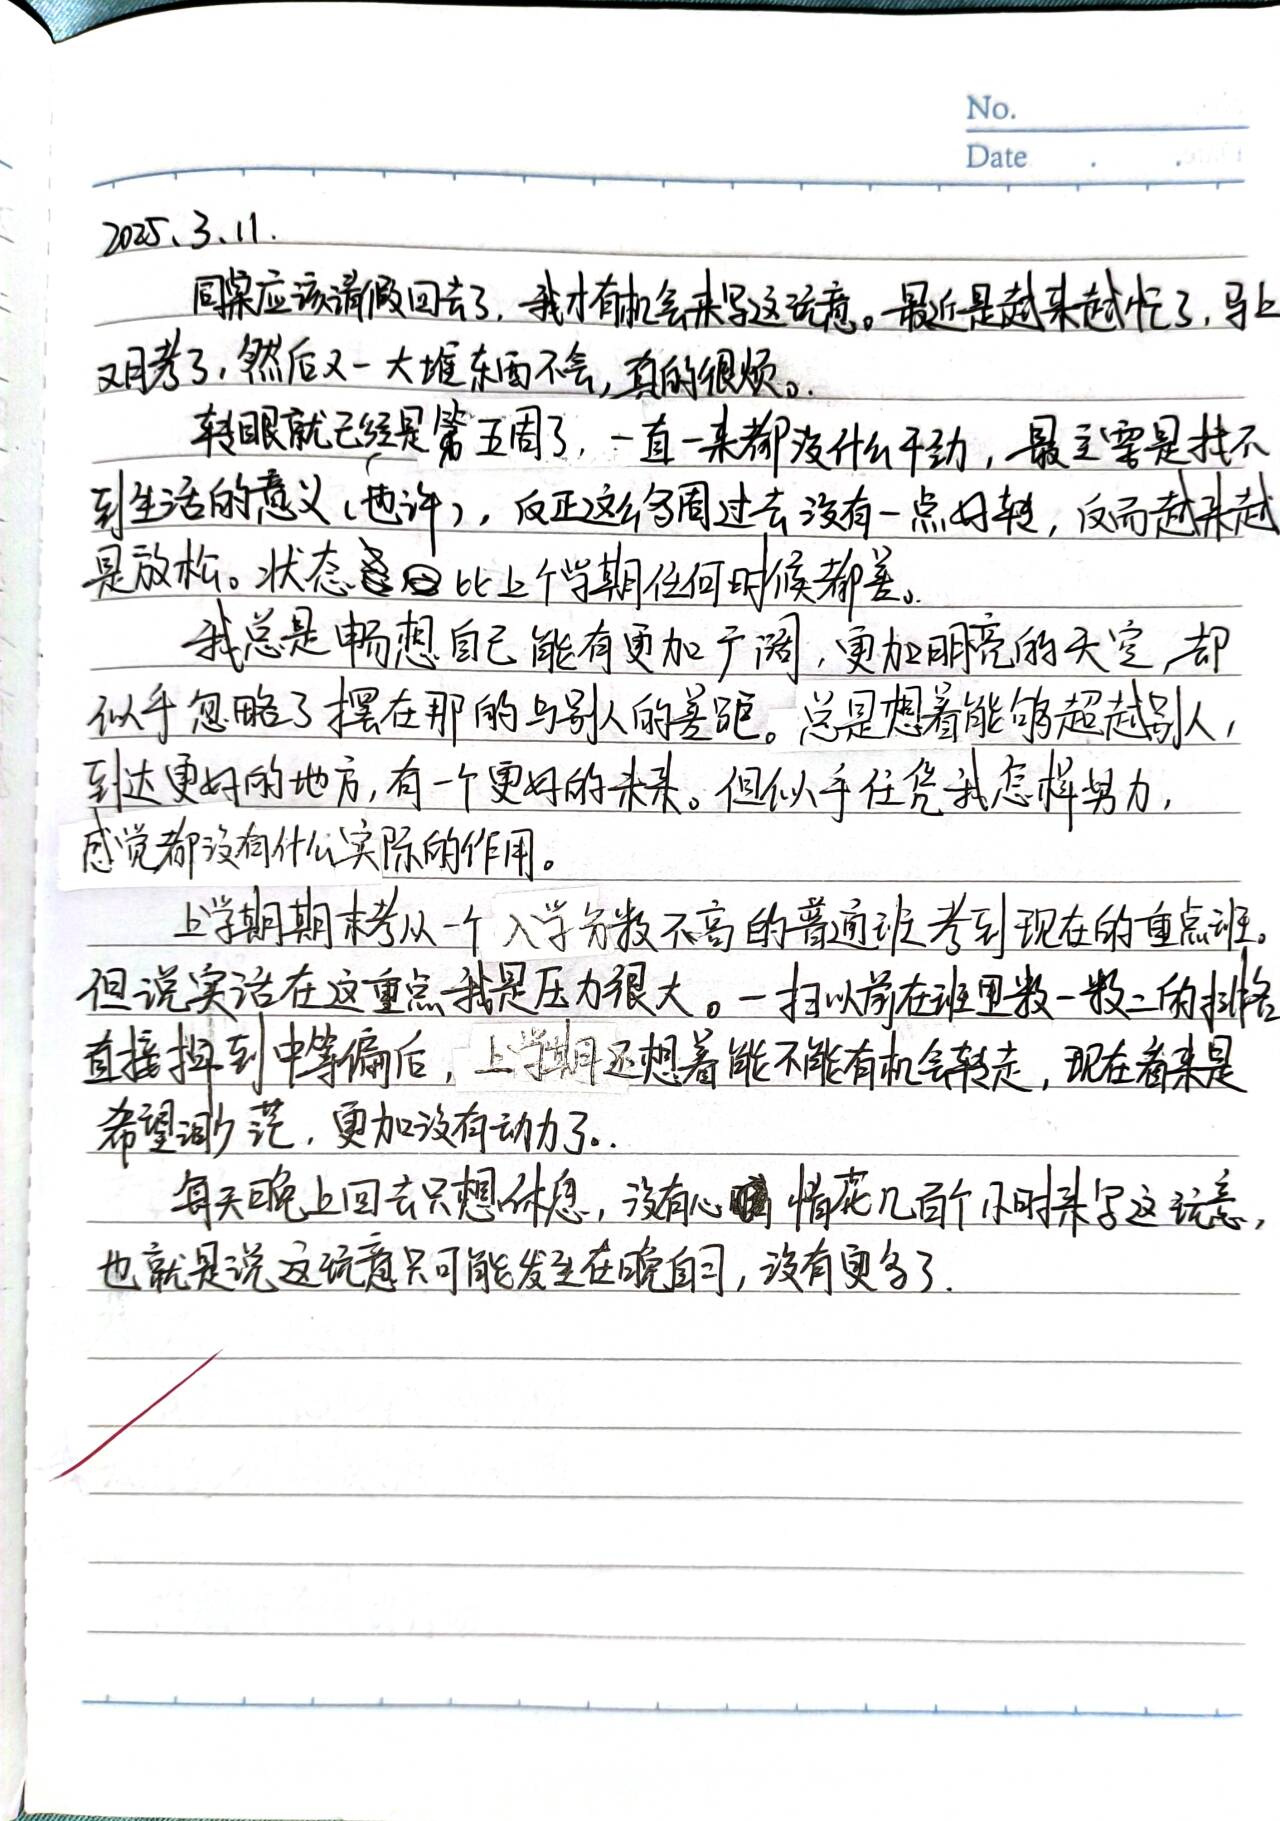 No.
Date . .
2025.3.11.
同桌应该请假回去了，我才有机会来写这玩意。最近是越来越忙了，马上
又月考了，然后又一大堆东西不会，真的很烦。
转眼就已经是第五周了，一直一来都没什么干劲，最主要是找不
到生活的意义（也许），反正这么多周过去没有一点好转，反而越来越
是放松。状态比上个学期任何时候都差。
我总是畅想自己能有更加广阔，更加明亮的天空，却
似乎忽略了摆在那的与别人的差距。总是想着能够超越别人，
到达更好的地方，有一个更好的未来。但似乎任凭我怎样努力，
感觉都没有什么实际的作用。
上学期期末考从一个入学分数不高的普通班考到现在的重点班。
但说实话在这重点我是压力很大。一扫以前在班里数一数二的排名
直接掉到中等偏后，上学期还想着能不能有机会转走，现在看来是
希望渺茫，更加没有动力了。.
每天晚上回去只想休息，没有心情花几百个小时来写这玩意，
也就是说这玩意只可能发生在晚自习，没有更多了.